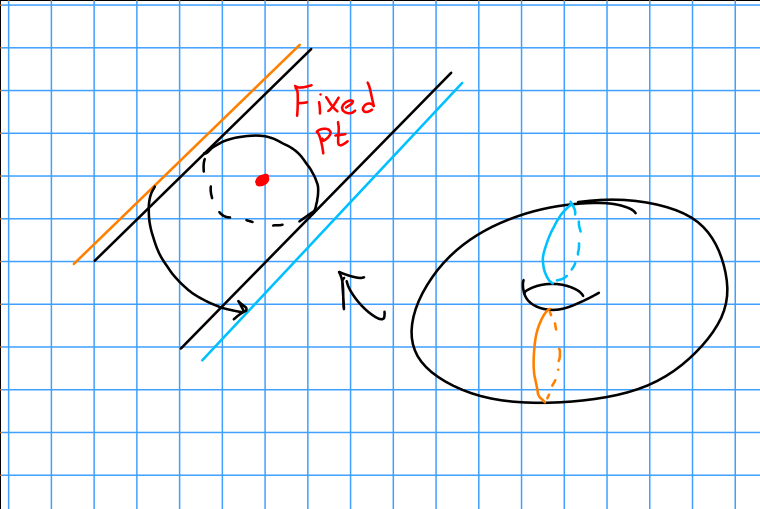 Fixed
pt